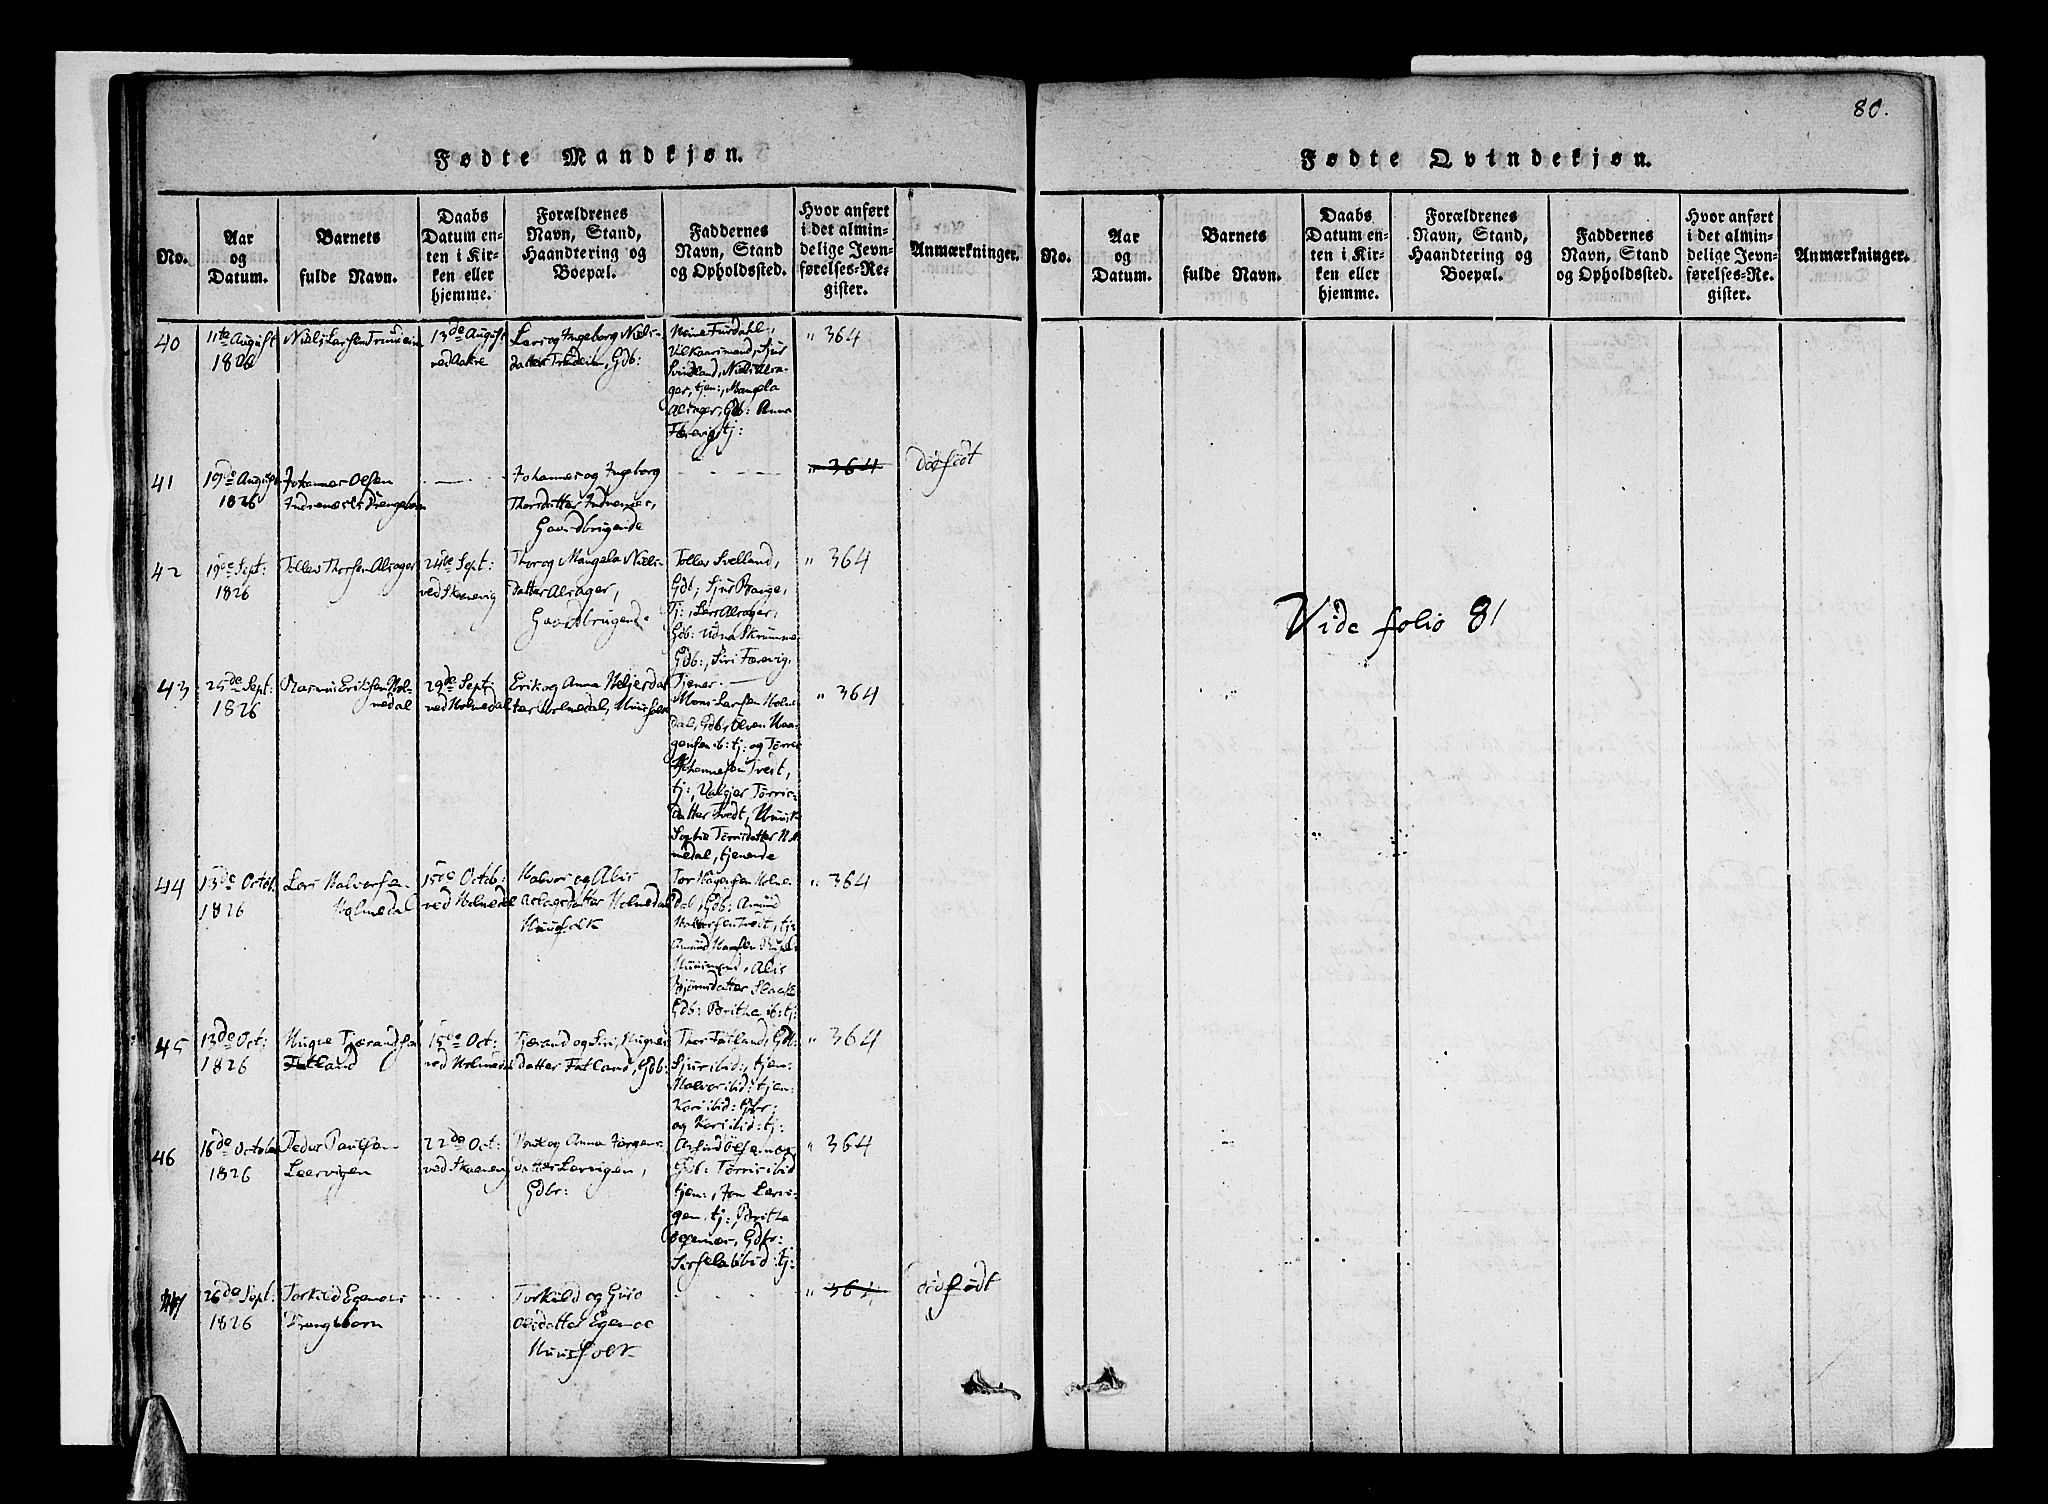 80.
Fødte Mandkjøn.
No.
Aar
og
Datum.
Barnets
fulde Navn.
Daabs
Datum en-
ten i Kir-
ken eller
hjemme.
Forældrenes
Navn, Stand,
Haandtering og
Boepæl.
Faddernes
Navn, Stand
og Opholdssted.
Hvor anført
i det almin-
delige Jevn-
førelses-Re-
gister.
Anmærkninger.
40
11te August
1826
Niels Larsen
13de August
ved Aakre
Lars og Ingeborg Niels-
datter Gdb:
Svindland, Niels Alsa-
ger, tjen:, Mangela
Alsager, Gdb: Anna
Færevig, tj:
" 364
41
19de August
1826
Johannes Olsen
Indrenæs's Drengebarn
Johannes og Ingeborg
Thorsdatter Indrenæs,
Gaardbrugende
" 364
dødfødt
42
19de Sept:
1826
Tollev Thorsen Alsager
24de Sept:
ved Skaanevig
Thor og Mangela Niels-
datter Alsager,
Gaardbrugende
Tollev Svelland,
Gdb, Sjur Bauge,
Tj:, Lars Alsager,
Gdb: Udna Skrumme
Gdb:, Siri Færevig,
Tjener.
" 364
43
25de Sept:
1826
Rasmus Eriksen Hol-
medal
29de Sept:
ved Holmedal
Erik og Anna Heljesdat
ter Holmedal, Huusfolk
Mons Larsen Holme
dal, Gdb, Olsen Haa-
gensen ib: tj: og Tørris
Johannessen Tveit,
tj:, Valgjer Tørris-
datter Tvedt, Huusk
Sophia Tørrisdatter Hol
medal, tjenende
" 364
44
13de Octob.
1826
Lars Halvorsen
Holmedal
15de Octob:
ved Holmedal
Halvor og Alis
Aslagsdatter Holmedal
Huusfolk
Tor Haagensen Holme-
dal, Gdb: Amund
Halvorsen Tveit, tj:
Amund Hansen
Huusmand, Alis
Bjørnsdatter
Gdb: Britha ib: tj:
" 364
45
13de Oct:
1826
Hugne Tjerandsen
Fatland
15de Oct:
ved Holmedal
Tjerand og Siri Hugnes
datter Fatland, Gdb:
Thor Fatland, Gdb:
Sjur ibid: tjen:
Halvor ibid: tjen:
Kari ibid: Gbr:
og Kari ibid: tj:
" 364
46
16de October
1826
Peder Paulsen
Leervigen
22de Oct:
ved Skaanevig
Poul og Anna Jørgens-
datter Lervigen,
Gdbr:
Gdb: Tørris ibid
tjen:, Jon Lervi-
gen, tj: Britha
Egenæs, Gdbr:
Sissela ibid: tj:
" 364
47
26de Sept:
1826
Torkild Egenæs
Drengebarn
Torkild og Guro
Olsdatter Egenæs
Huusfolk
" 364
dødfødt
Fødte Qvindekjøn.
No.
Aar
og
Datum.
Barnets
fulde Navn.
Daabs
Datum en-
ten i Kir-
ken eller
hjemme.
Forældrenes
Navn, Stand,
Haandtering og
Boepæl.
Faddernes
Navn, Stand
og Opholdssted.
Hvor anført
i det almin-
delige Jevn-
førelses-Re-
gister.
Anmærkninger.
Vide folio 81